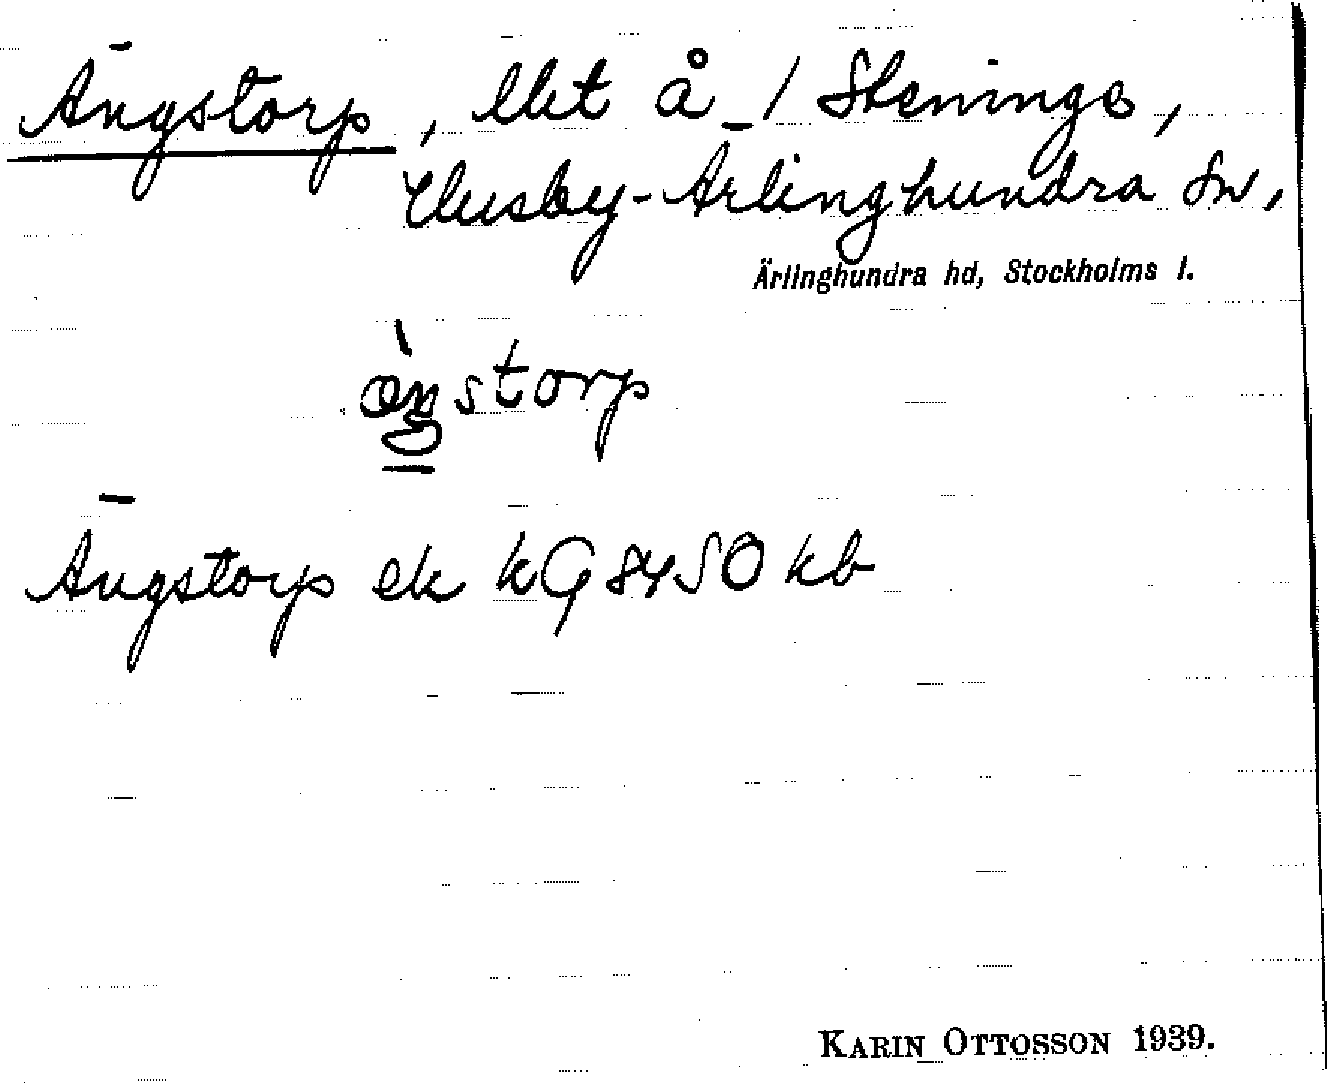 Ängstorp, lht å 1 Steninge,
Husby-Ärlinghundra sn,
Ärlinghundra hd, Stockholms l.
storp
Ängstorp ek kG 8450 kb
KARIN OTTOSSON 1939.